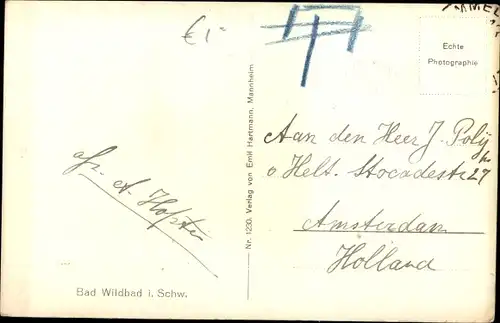 €1-
Echte
Photographie
Aan den Heer J. Polij
v Helt. Stocadestr 27
hs
Amsterdam
Holland
afz. A. Hofster
Nr. 1230. Verlag von Emil Hartmann, Mannheim
Bad Wildbad i. Schw.